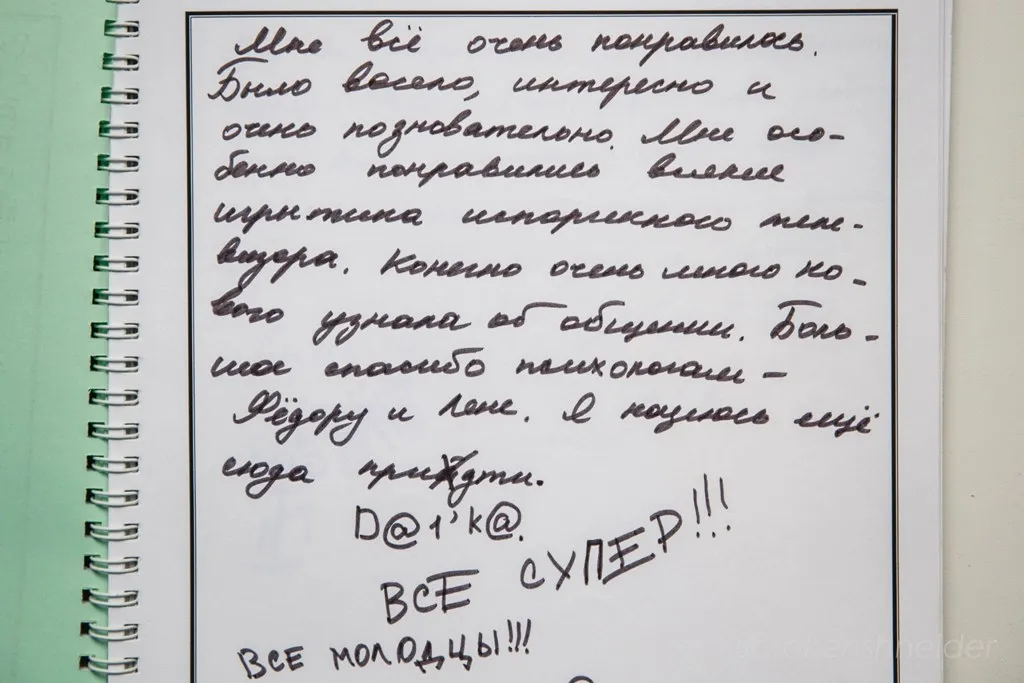 Мне всё очень понравилось.
Было весело, интересно и
очень позновательно. Мне осо-
бенно понравились всякие
штучки
визора. Конечно очень много но-
вого узнала об общении. Боль-
шое спасибо психологам –
Фёдору и Лене. Я надеюсь ещё
сюда придти.
D@1'k@.
ВСЕ СУПЕР!!!
ВСЕ МОЛОДЦЫ!!!